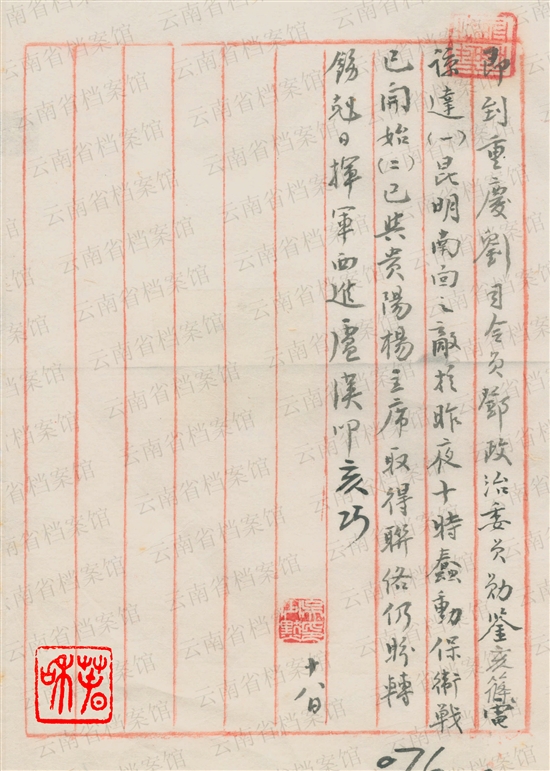 即到重慶劉司令員鄧政治委員勛鑒亥篠電
諒達(一)昆明南面之敵於昨夜十時蠢動保衛戰
已開始(二)已與貴陽楊主席取得聯絡仍盼轉
飭剋日揮軍西進盧漢叩亥巧
十八日
076
云南省档案馆